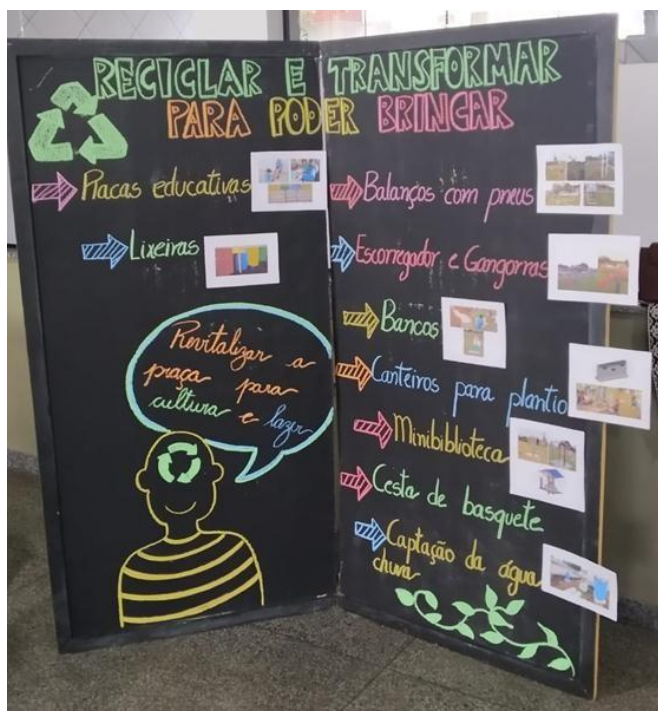 RECICLAR E TRANSFORMAR
PARA PODER BRINCAR
Placas educativas
Lixeiras
Revitalizar a
praça para
cultura e lazer
Balanços com pneus
Escorregador e Gangorras
Bancos
Canteiros para plantio
Minibiblioteca
Cesta de basquete
Captação da água
chuva